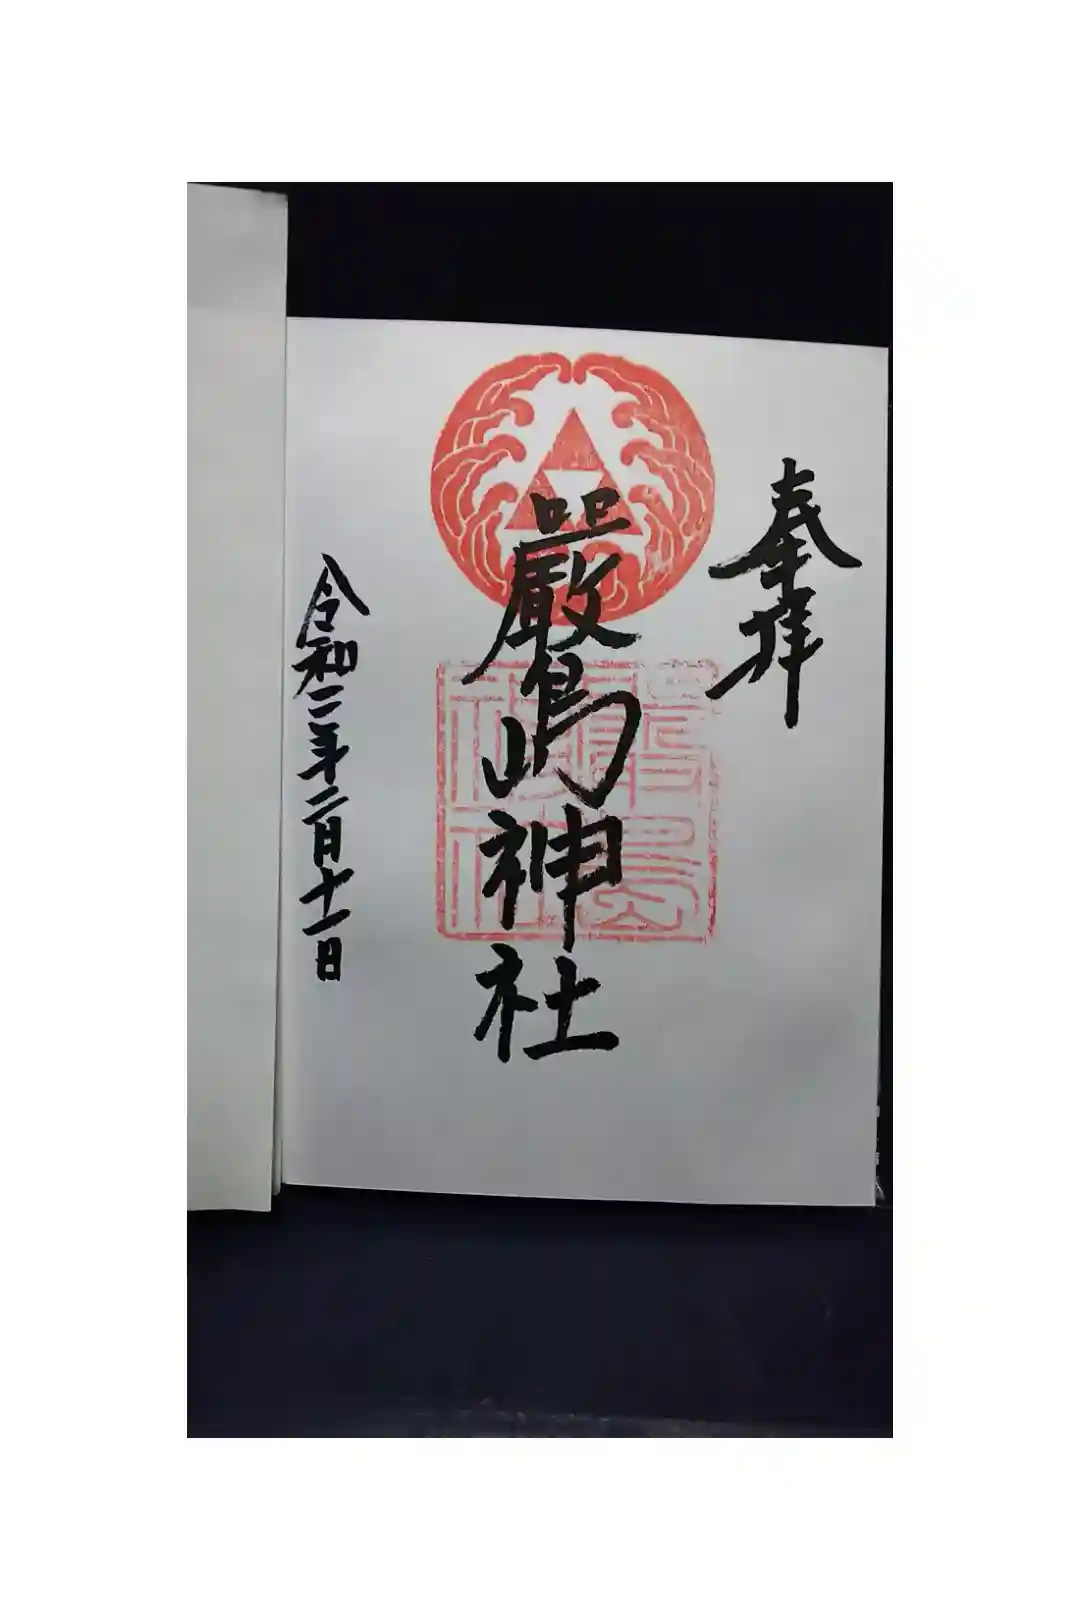 奉拝
嚴島神社
嚴島神社
令和二年二月十一日